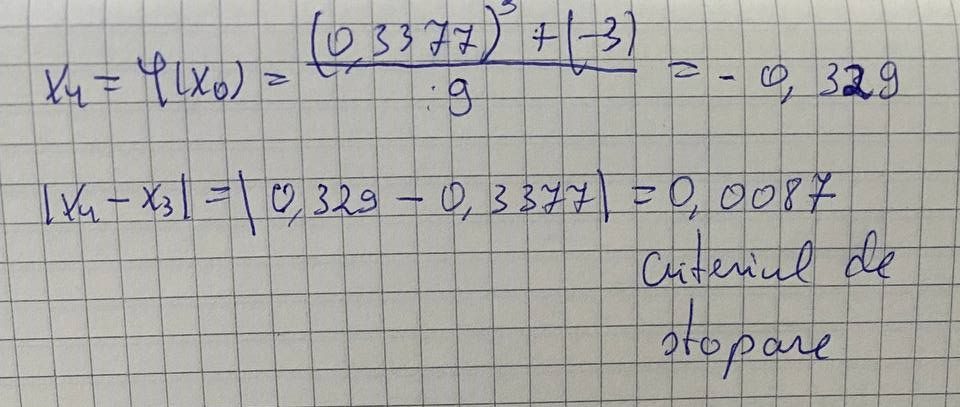 x₄ = φ(x₀) = (0,3377)³ + (-3) / 9 = - 0,329
|x₄ - x₃| = |0,329 - 0,3377| = 0,0087
criteriul de
stopare